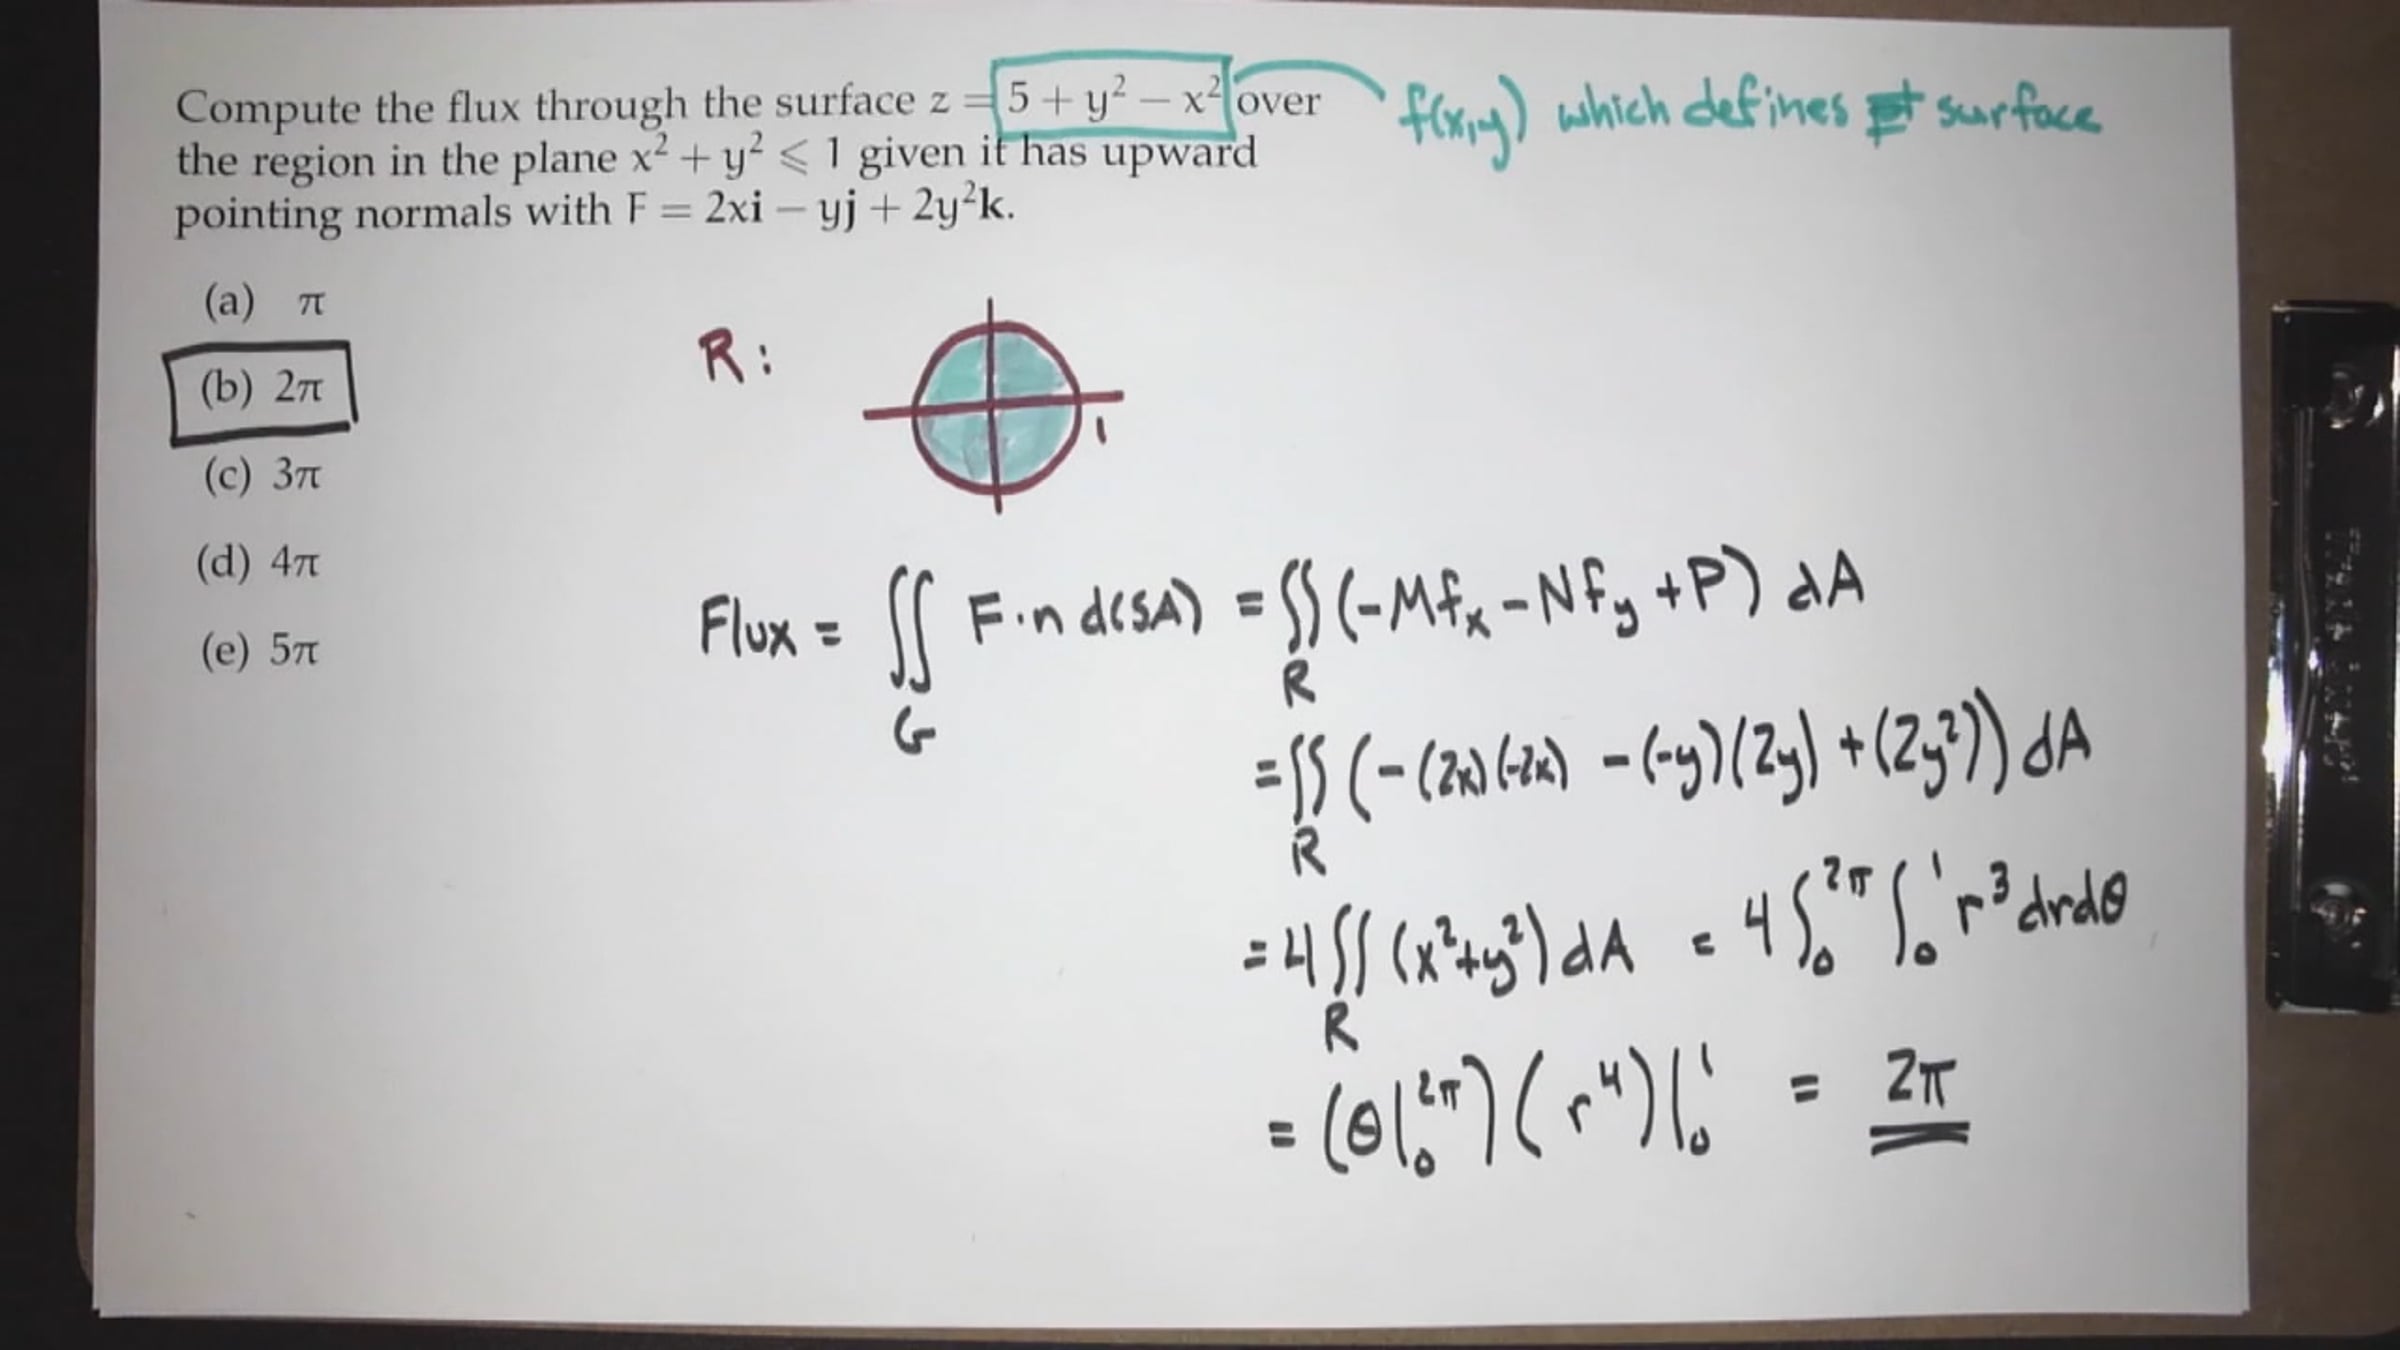 Compute the flux through the surface z = 5 + y² − x² over
the region in the plane x² + y² ⩽ 1 given it has upward
pointing normals with F = 2xi − yj + 2y²k.
f(x,y) which defines surface
(a) π
(b) 2π
(c) 3π
(d) 4π
(e) 5π
R:
1
Flux = ∬_G F·n d(SA) = ∬_R (-Mf_x - Nf_y + P) dA
= ∬_R (-(2x)(-2x) - (-y)(2y) + (2y²)) dA
= 4∬_R (x²+y²) dA = 4∫₀^2π ∫₀^1 r³ drdθ
= (θ|₀^2π)(r⁴)|₀^1 = 2π